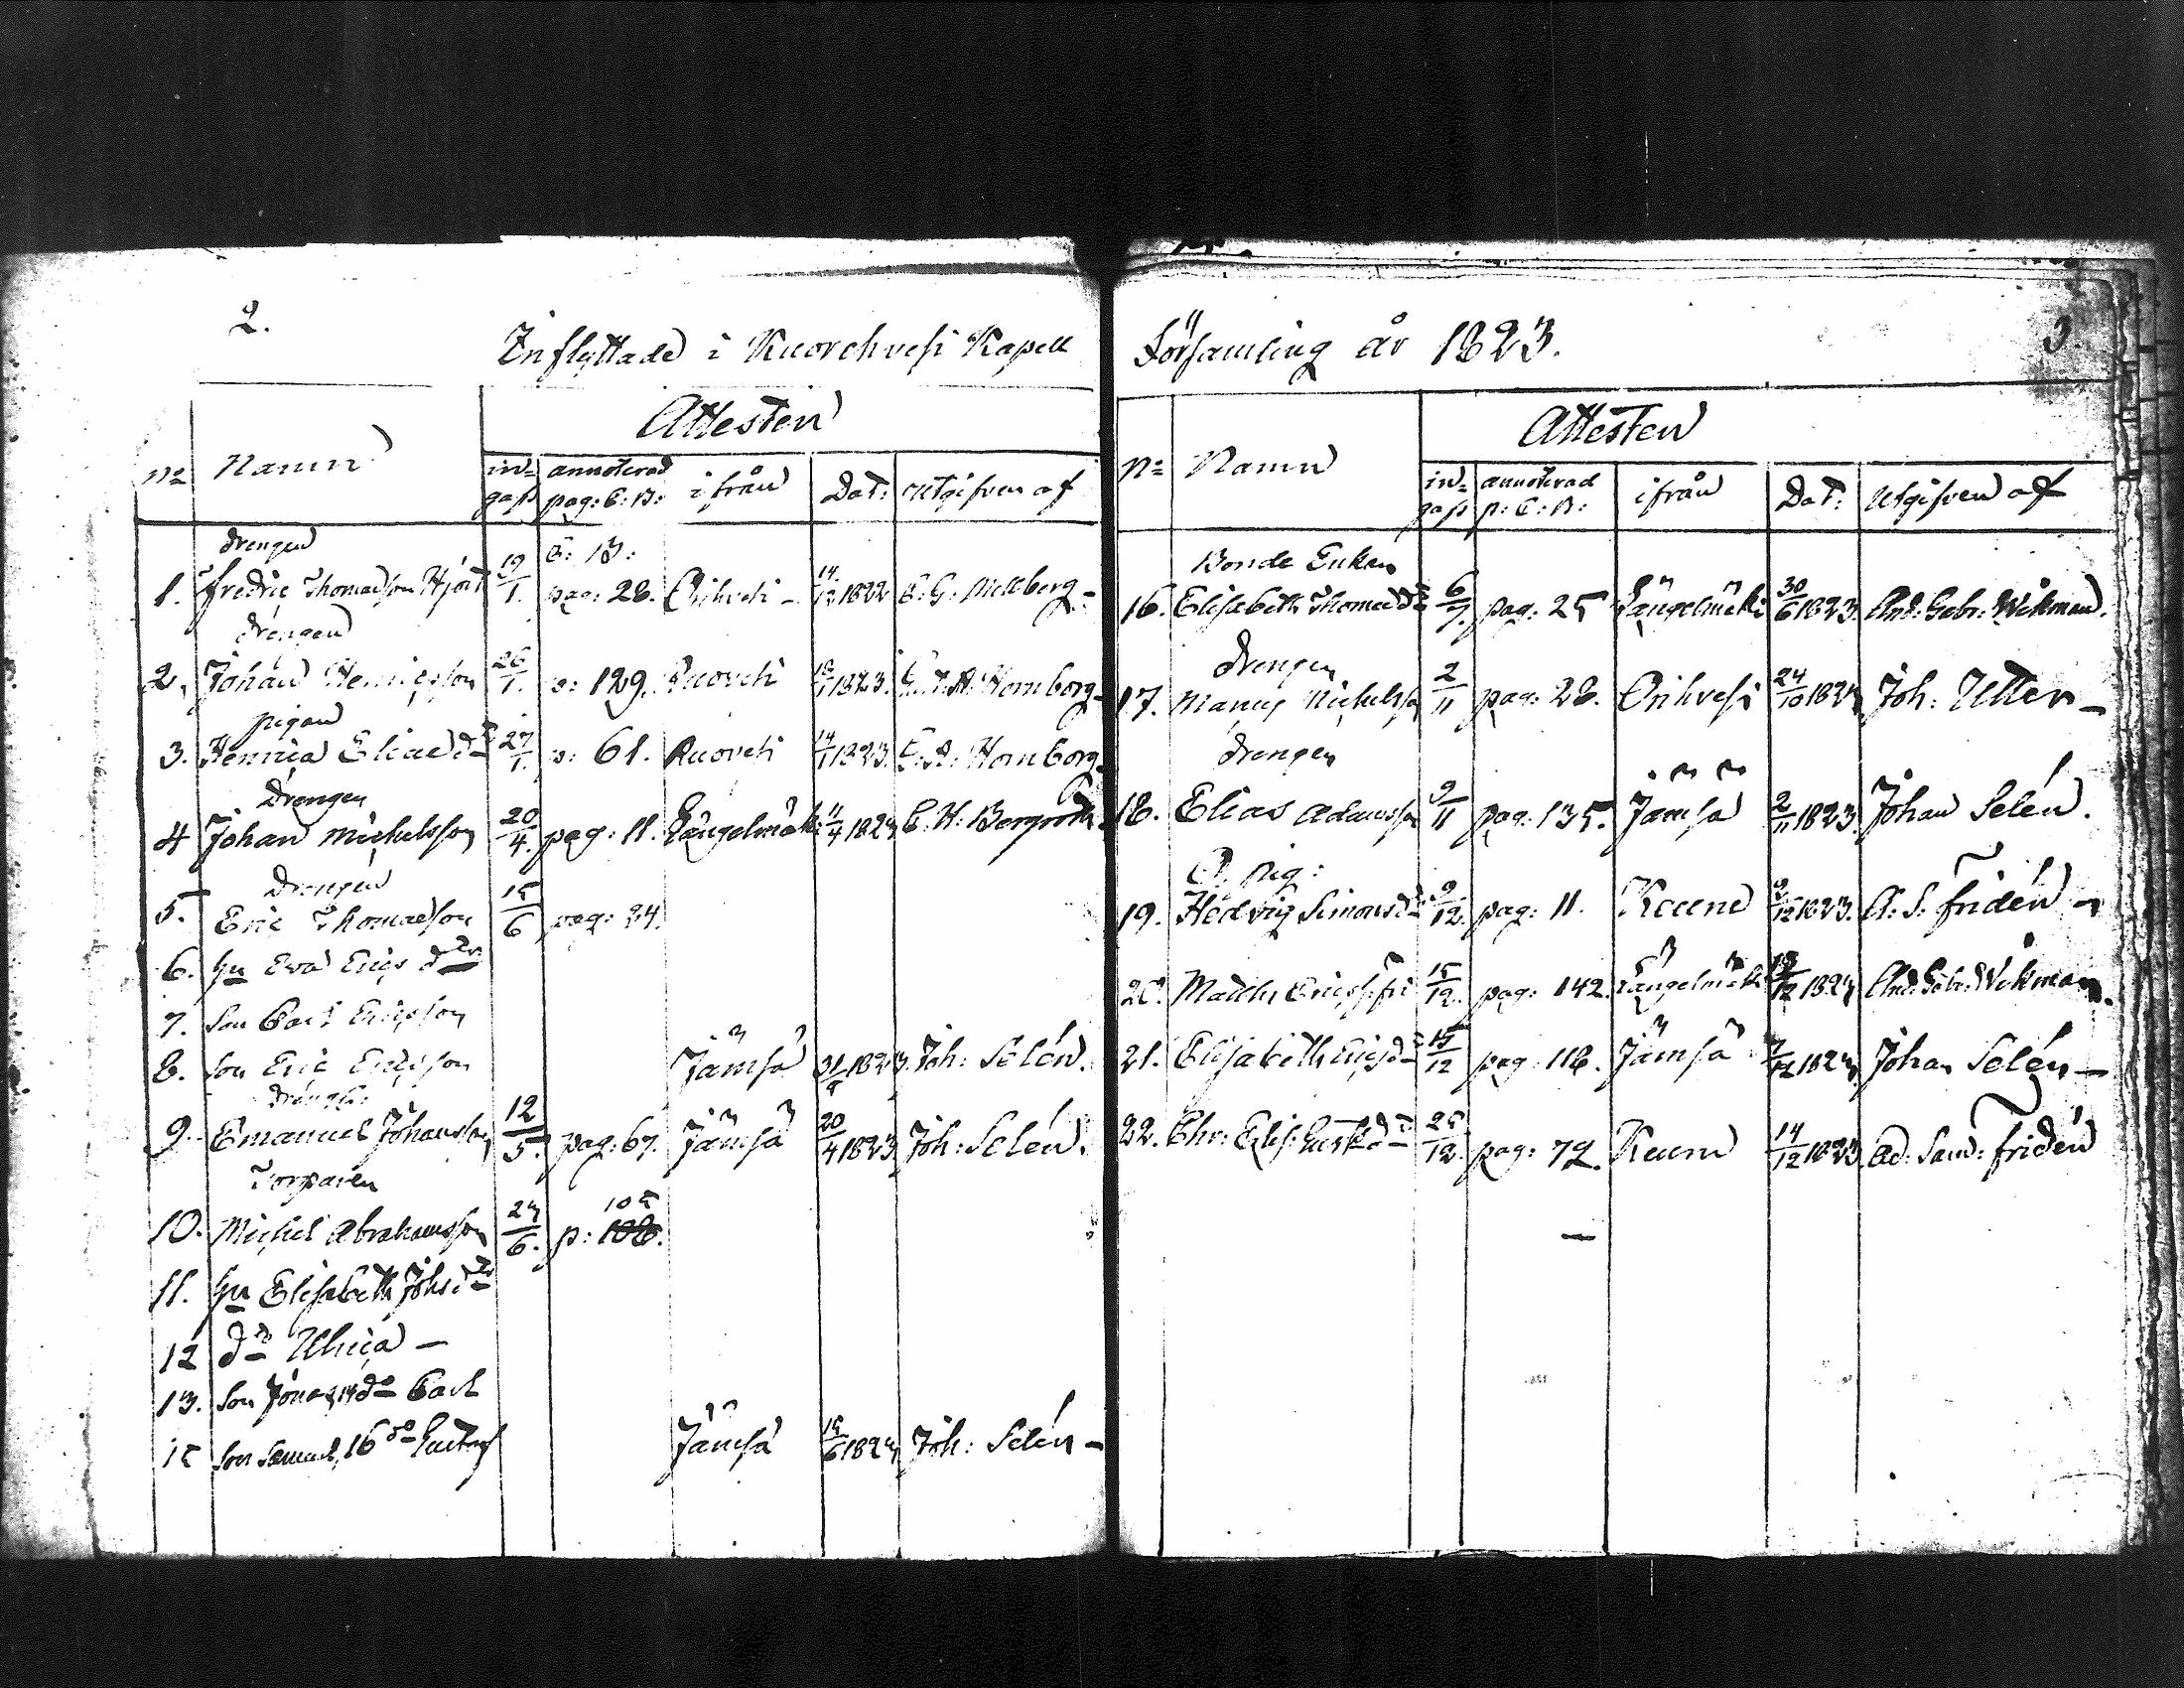 2.
Inflyttade i Kuorehvesi Kapell
Attesten
No Namn in= gafs annoterad pag: C: B: ifrån Dat: utgifven af
drengen C: B:
1. Fredric Thomasson Hjort 19/1. pag: 28. Orihvesi - 14/12 1822 C: G:
drengen
2. Johan Henricsson 26/1. p: 129. Ruovesi 1823. Hornborg
pigan
3. Henrica Eliaed:r 27/1. p: 61. Ruovesi 14/1 1823. Hornborg
Drengen
4 Johan Michelsson 20/4. pag: 11. Längelmäki 11/4 1823 C. H: Bergroth
Drengen
5. Eric Thomasson 15/6 pag: 24.
6. Hu Eva Erics dr
7. Son Carl Ericsson
8. Son Eric Ericsson Jämsä 1823. Joh: Selén.
Drengen
9. Emanuel Johansson 12/5. pag: 67. Jämsä 20/4 1823 Joh: Selén.
Torparen 105
10. Michel Abrahamsson 24/6. p: 108.
11. Hu Elisabeth Johsdr
12 dr Ulrica -
13. Son Jonas, 14 do Carl
15 Son Samuel, 16 do Gustaf Jämsä 1823 Joh: Selén -
3.
Församling år 1823.
Attesten
No Namn in= gafs annoterad p: C: B: ifrån Dat: utgifven af
Bonde Enkan
16. Elisabeth Thomaedr 6/7. pag: 25 Längelmäki 30/6 1823. And: Gabr: Wikman.
drengen
17. Michelsson 2/11 pag: 28. Orihvesi 24/10 1823 Joh: Utter -
drengen
18. Elias Adamsson 9/11 pag: 135. Jämsä 2/11 1823. Johan Selén.
pig:
19. Hedvig Simonsdr 9/12. pag: 11. Keuru 9/12 1823. A: S: Fridén -
20. Matths 15/12. pag: 142. Längelmäki 1823 And: Gabr: Wikman.
21. Elisabeth Ericsdr 15/12 pag: 118. Jämsä 1823 Johan Selén -
22. Chr: Elis: Gust:dr 25/12. pag: 72. Keuru 14/12 1823 Ad: Sam: Fridén
-